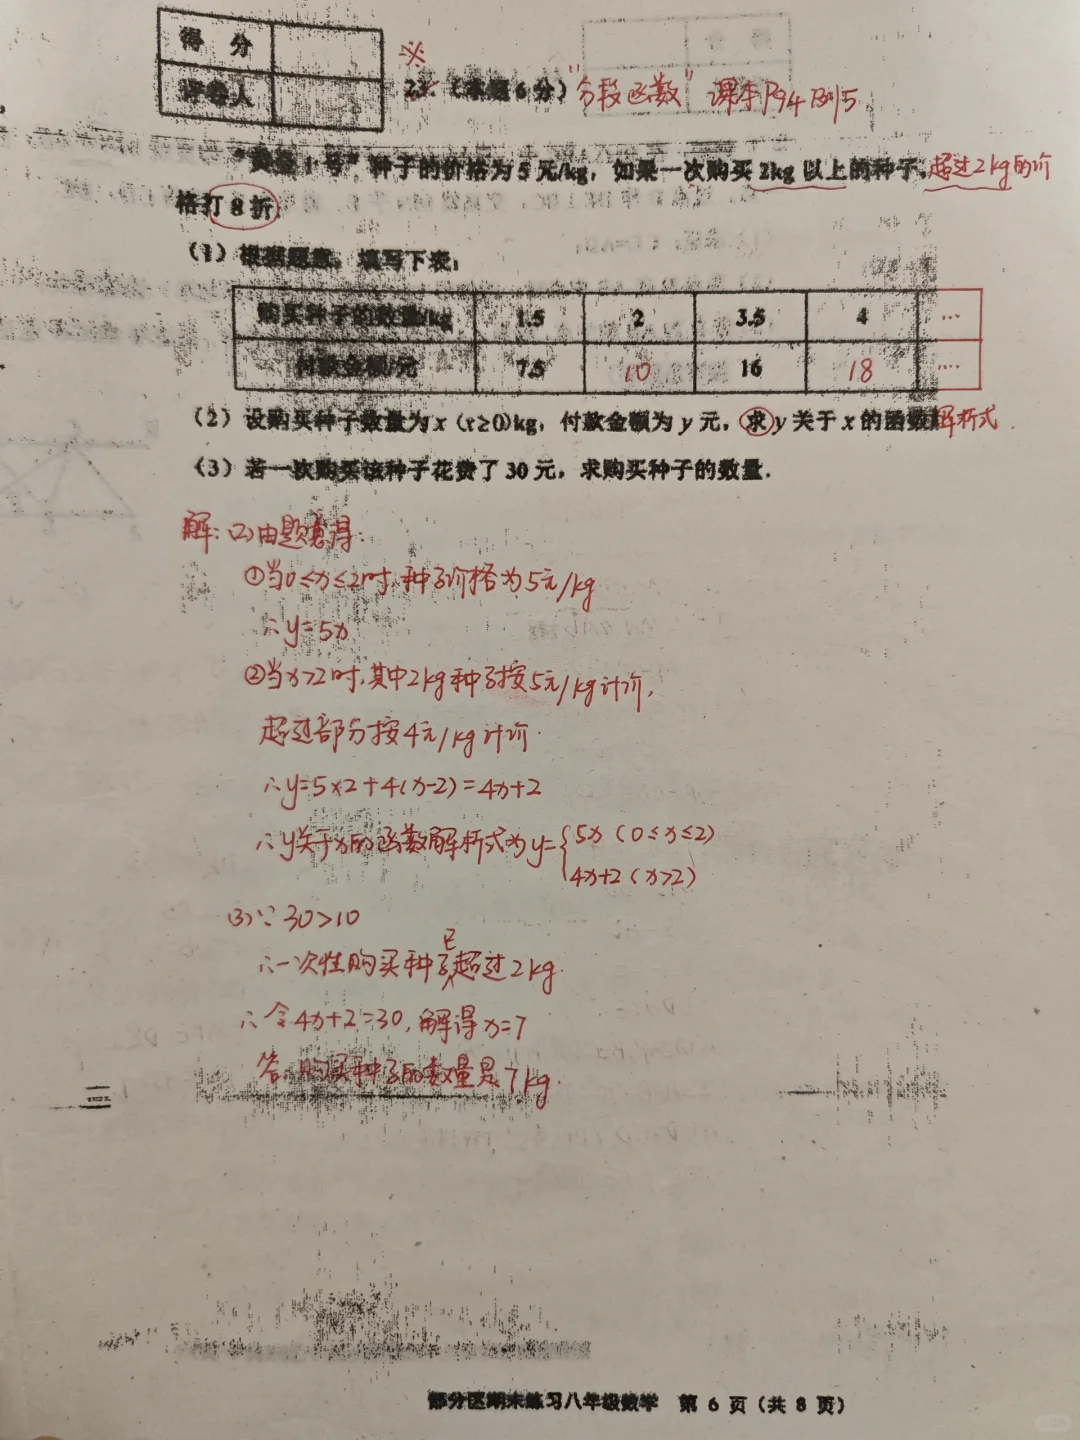 得 分
评卷人
※
23. (本题6分) "分段函数" 课本P94 例5
"黄金1号"种子的价格为5元/kg，如果一次购买2kg以上的种子，超过2kg的价
格打8折.
(1) 根据题意，填写下表：
购买种子的数量/kg 1.5 2 3.5 4 …
付款金额/元 7.5 10 16 18 …
(2) 设购买种子数量为x (x≥0)kg，付款金额为y元，求y关于x的函数解析式.
(3) 若一次购买该种子花费了30元，求购买种子的数量.
解：(2)由题意得：
①当0≤x≤2时，种子价格为5元/kg
∴y=5x
②当x>2时，其中2kg种子按5元/kg计价，
超过部分按4元/kg计价.
∴y=5×2+4(x-2)=4x+2
∴y关于x的函数解析式为y={5x (0≤x≤2)
4x+2 (x>2)
(3)∵30>10
∴一次性购买种子已超过2kg.
∴令4x+2=30，解得x=7
答：购买种子的数量是7kg.
部分区期末练习八年级数学 第6页(共8页)